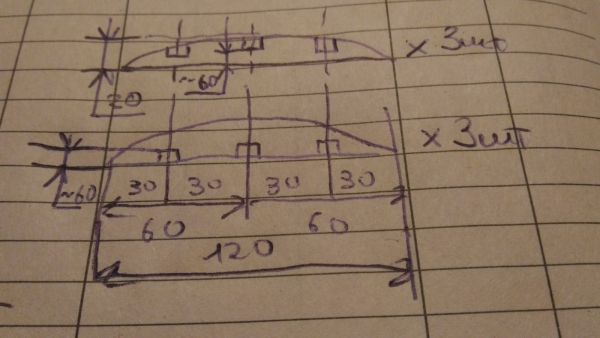 x 3шт
~60
20
x 3шт
~60
30 30 30 30
60 60
120